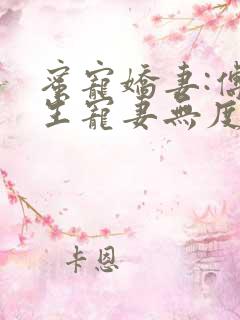 蜜寵嬌妻:傅
生寵妻無度
卡恩